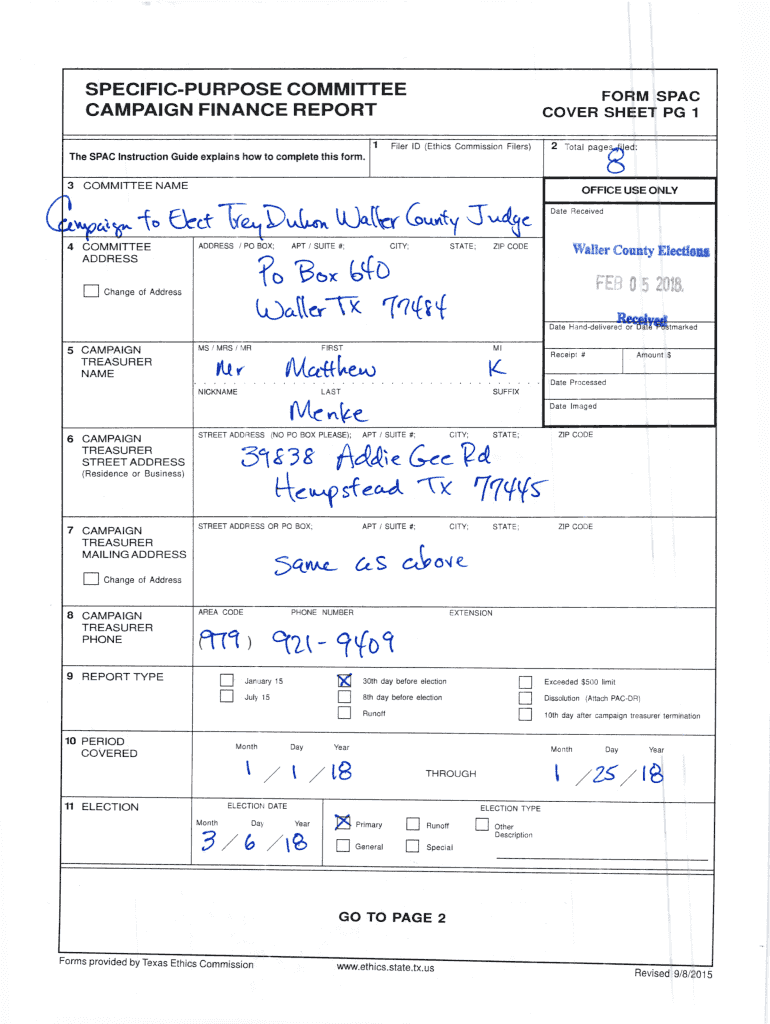 SPECIFIC-PURPOSE COMMITTEE
CAMPAIGN FINANCE REPORT
FORM SPAC
COVER SHEET PG 1
The SPAC Instruction Guide explains how to complete this form.
1 Filer ID (Ethics Commission Filers)
2 Total pages filed:
8
3 COMMITTEE NAME
Campaign to Elect Trey Duhon Waller County Judge
OFFICE USE ONLY
Date Received
Waller County Elections
FEB 05 2018
Received
Date Hand-delivered or Date Postmarked
4 COMMITTEE
ADDRESS
Change of Address
ADDRESS / PO BOX; APT / SUITE #; CITY; STATE; ZIP CODE
Po Box 640
Waller TX 77484
5 CAMPAIGN
TREASURER
NAME
MS / MRS / MR FIRST MI
Mr Matthew K
NICKNAME LAST SUFFIX
Menke
Receipt # Amount $
Date Processed
Date Imaged
6 CAMPAIGN
TREASURER
STREET ADDRESS
(Residence or Business)
STREET ADDRESS (NO PO BOX PLEASE); APT / SUITE #; CITY; STATE; ZIP CODE
39838 Addie Gee Rd
Hempstead TX 77445
7 CAMPAIGN
TREASURER
MAILING ADDRESS
Change of Address
STREET ADDRESS OR PO BOX; APT / SUITE #; CITY; STATE; ZIP CODE
same as above
8 CAMPAIGN
TREASURER
PHONE
AREA CODE PHONE NUMBER EXTENSION
(979) 921-9409
9 REPORT TYPE
January 15 30th day before election Exceeded $500 limit
July 15 8th day before election Dissolution (Attach PAC-DR)
Runoff 10th day after campaign treasurer termination
10 PERIOD
COVERED
Month Day Year Month Day Year
1 / 1 / 18 THROUGH 1 / 25 / 18
11 ELECTION
ELECTION DATE ELECTION TYPE
Month Day Year
3 / 6 / 18
Primary Runoff Other
Description
General Special
GO TO PAGE 2
Forms provided by Texas Ethics Commission www.ethics.state.tx.us Revised 9/8/2015